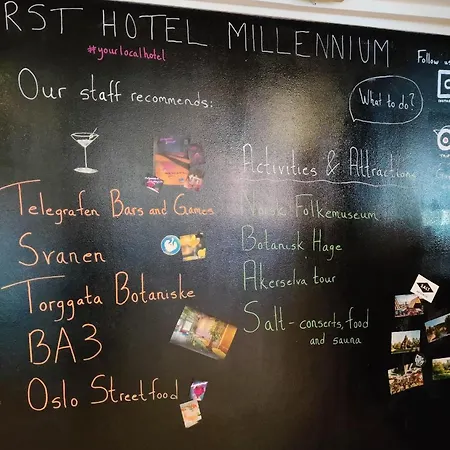 RST HOTEL MILLENNIUM
#yourlocalhotel
Follow us
Our staff recommends:
What to do?
Activities & Attractions
Telegrafen Bars and Games
Svanen
Torggata Botaniske
BA3
Oslo Streetfood
Norsk Folkemuseum
Botanisk Hage
Akerselva tour
Salt - conserts, food
and sauna
SALT